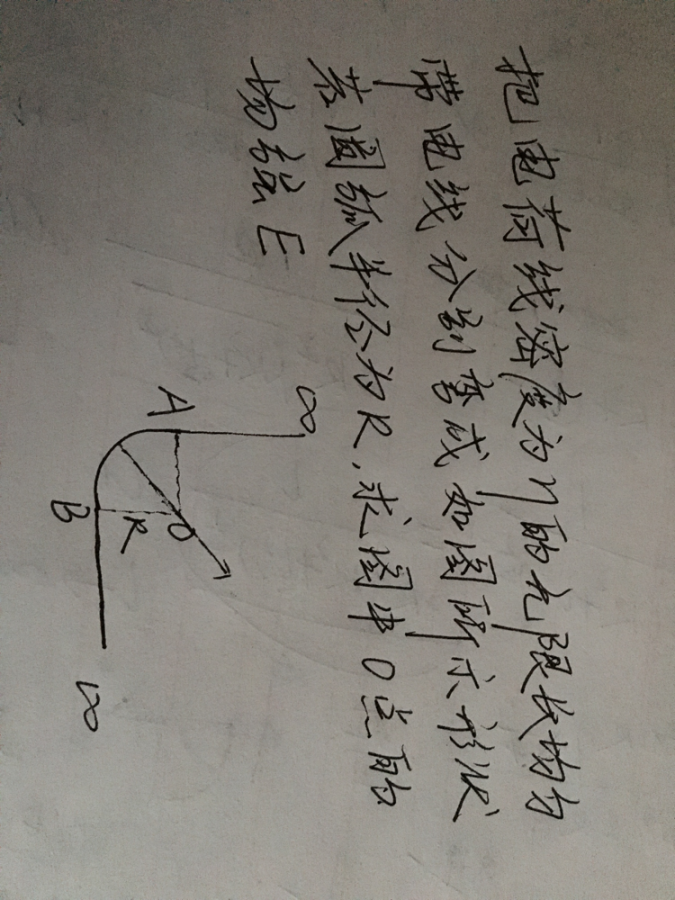 把电荷线密度为η的无限长均匀
带电线分别弯成如图所示形状
若圆弧半径为R,求图中O点的
场强E
∞
A
O
R
B
∞